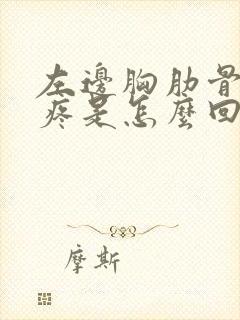 左邊胸肋骨
疼是怎麼回
摩斯